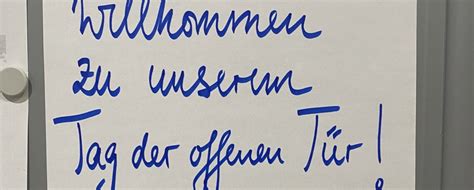 Willkommen
zu unserem
Tag der offenen Tür!